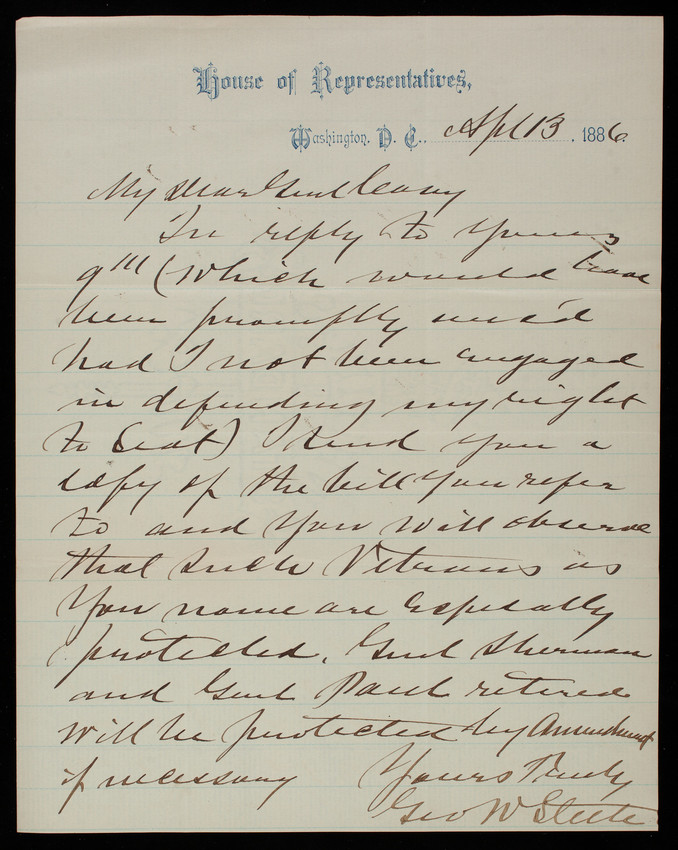 House of Representatives,
Washington, D. C., Apl 13, 1886
My Dear Genl Casey
In reply to yours
9th (which would have
been promptly ans'd
had I not been engaged
in defending my right
to Seat) I send you a
copy of the bill you refer
to and you will observe
that such Veterans as
you name are especially
protected. Genl Sherman
and Genl Paul retired
will be protected by Amendment
if necessary Yours Truly
Geo W Steele